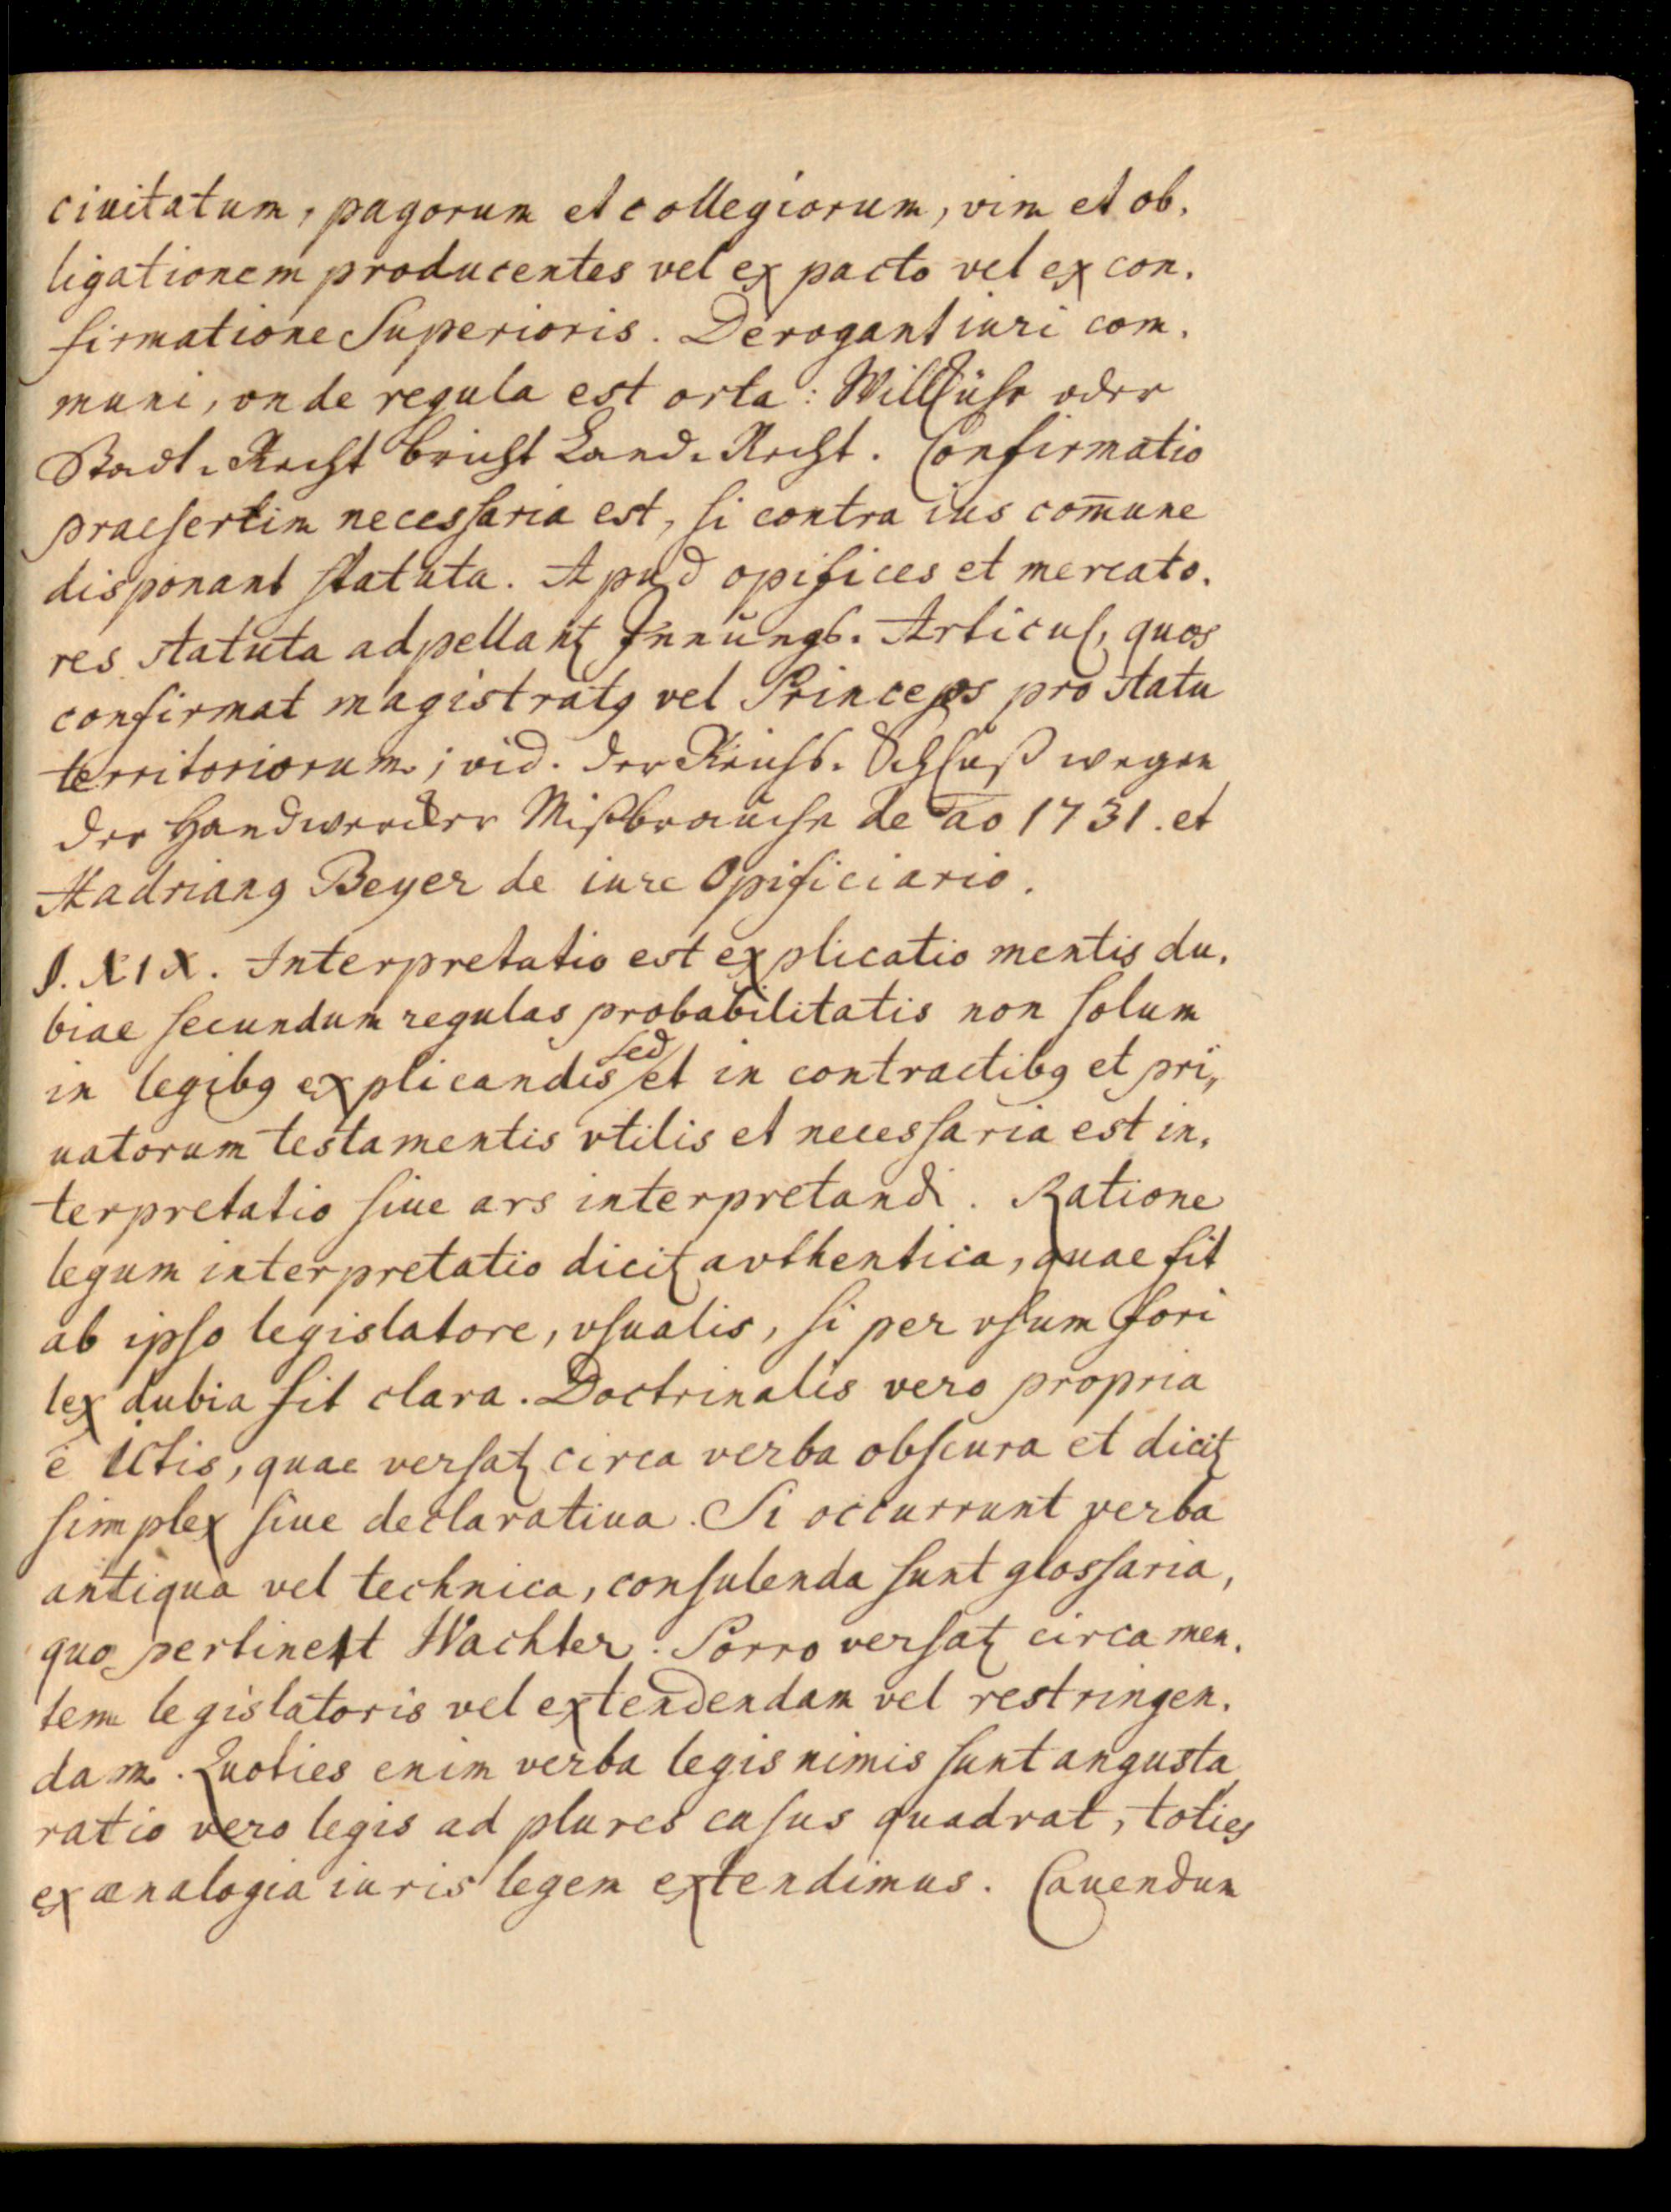 ciuitatum, pagorum et collegiorum, vim et ob,
ligationem producentes vel ex pacto vel ex con,
firmatione Superioris. Derogant iuri com,
muni, vnde regula est orta: Willkühr oder
Stadt-Recht bricht Land-Recht. Confirmatio
praesertim necessaria est, si contra ius com̄une
disponant statuta. Apud opifices et mercato,
res statuta adpellantꝫ Innungs-Articul, quos
confirmat magistratꝯ vel Princeps pro statu
territoriorum; vid. der Reichs-Schluß wegen
der Handwercker Mißbräuche de ao 1731. et
Hadrianꝯ Beyer de iure Opificiario.
§. XIX. Interpretatio est explicatio mentis du,
biae secundum regulas probabilitatis non solum
in legibꝯ explicandis sed et in contractibꝯ et pri,
uatorum testamentis vtilis et necessaria est in,
terpretatio siue ars interpretandi. Ratione
legum interpretatio dicitꝫ avthentica, quae fit
ab ipso legislatore, vsualis, si per vsum fori
lex dubia fit clara. Doctrinalis vero propria
ē ICtis, quae versatꝫ circa verba obscura et dicitꝫ
simplex siue declaratiua. Si occurrunt verba
antiqua vel technica, consulenda sunt glossaria,
quo pertinet Wachter. Porro versatꝫ circa men,
tem legislatoris vel extendendam vel restringen,
dam. Quoties enim verba legis nimis sunt angusta
ratio vero legis ad plures casus quadrat, toties
ex analogia iuris legem extendimus. Cauendum